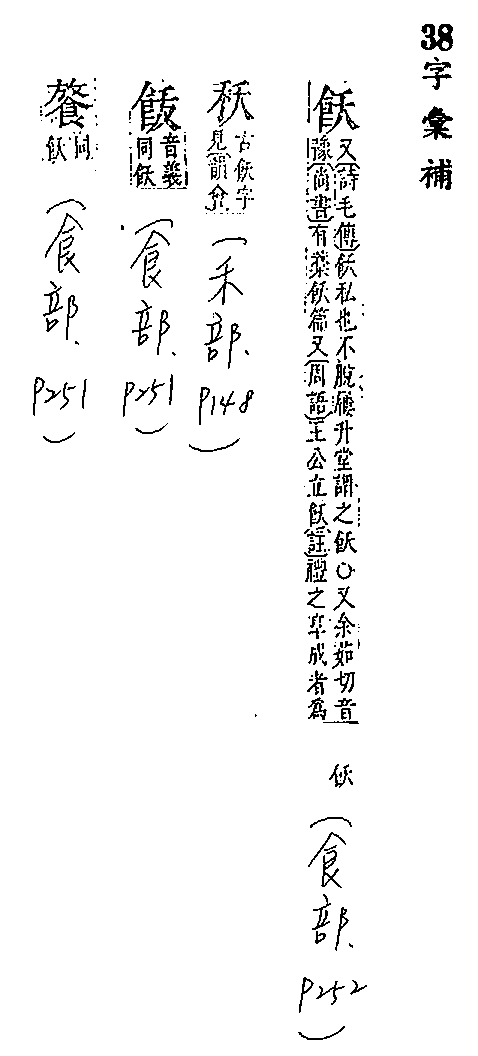 38字彙補
飫
又詩毛傳飫私也不脫屨升堂謂之飫○又余茹切音
豫尚書有槀飫篇又周語王公立飫註禮之立成者為
飫
(食部.
P252)
䄏
古飫字
見韻會
(禾部.
P148)
音義
同飫
(食部.
P251)
同
飫
(食部.
P251)